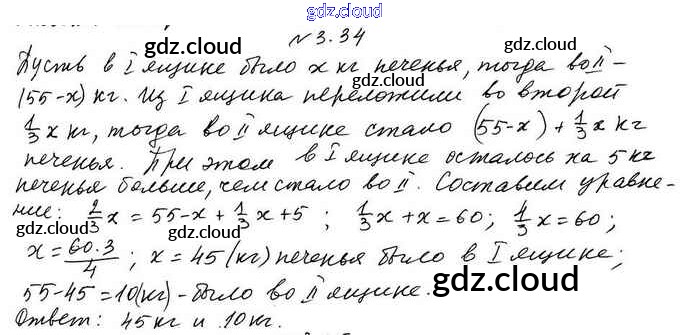 gdz.cloud
№3.34
Пусть в I ящике было x кг печенья, тогда во II –
(55-x) кг. Из I ящика переложили во второй
1/3 x кг, тогда во II ящике стало (55-x) + 1/3 x кг
печенья. При этом в I ящике осталось на 5 кг
печенья больше, чем стало во II. Составим уравне-
ние: 2/3 x = 55-x + 1/3 x + 5 ; 1/3 x + x = 60; 4/3 x = 60;
x = 60·3/4 ; x = 45 (кг) печенья было в I ящике;
55-45 = 10(кг) - было во II ящике.
Ответ: 45 кг и 10 кг.
gdz.cloud
gdz.cloud
gdz.cloud
gdz.cloud
gdz.cloud
gdz.cloud
gdz.cloud
gdz.cloud
gdz.cloud
gdz.cloud